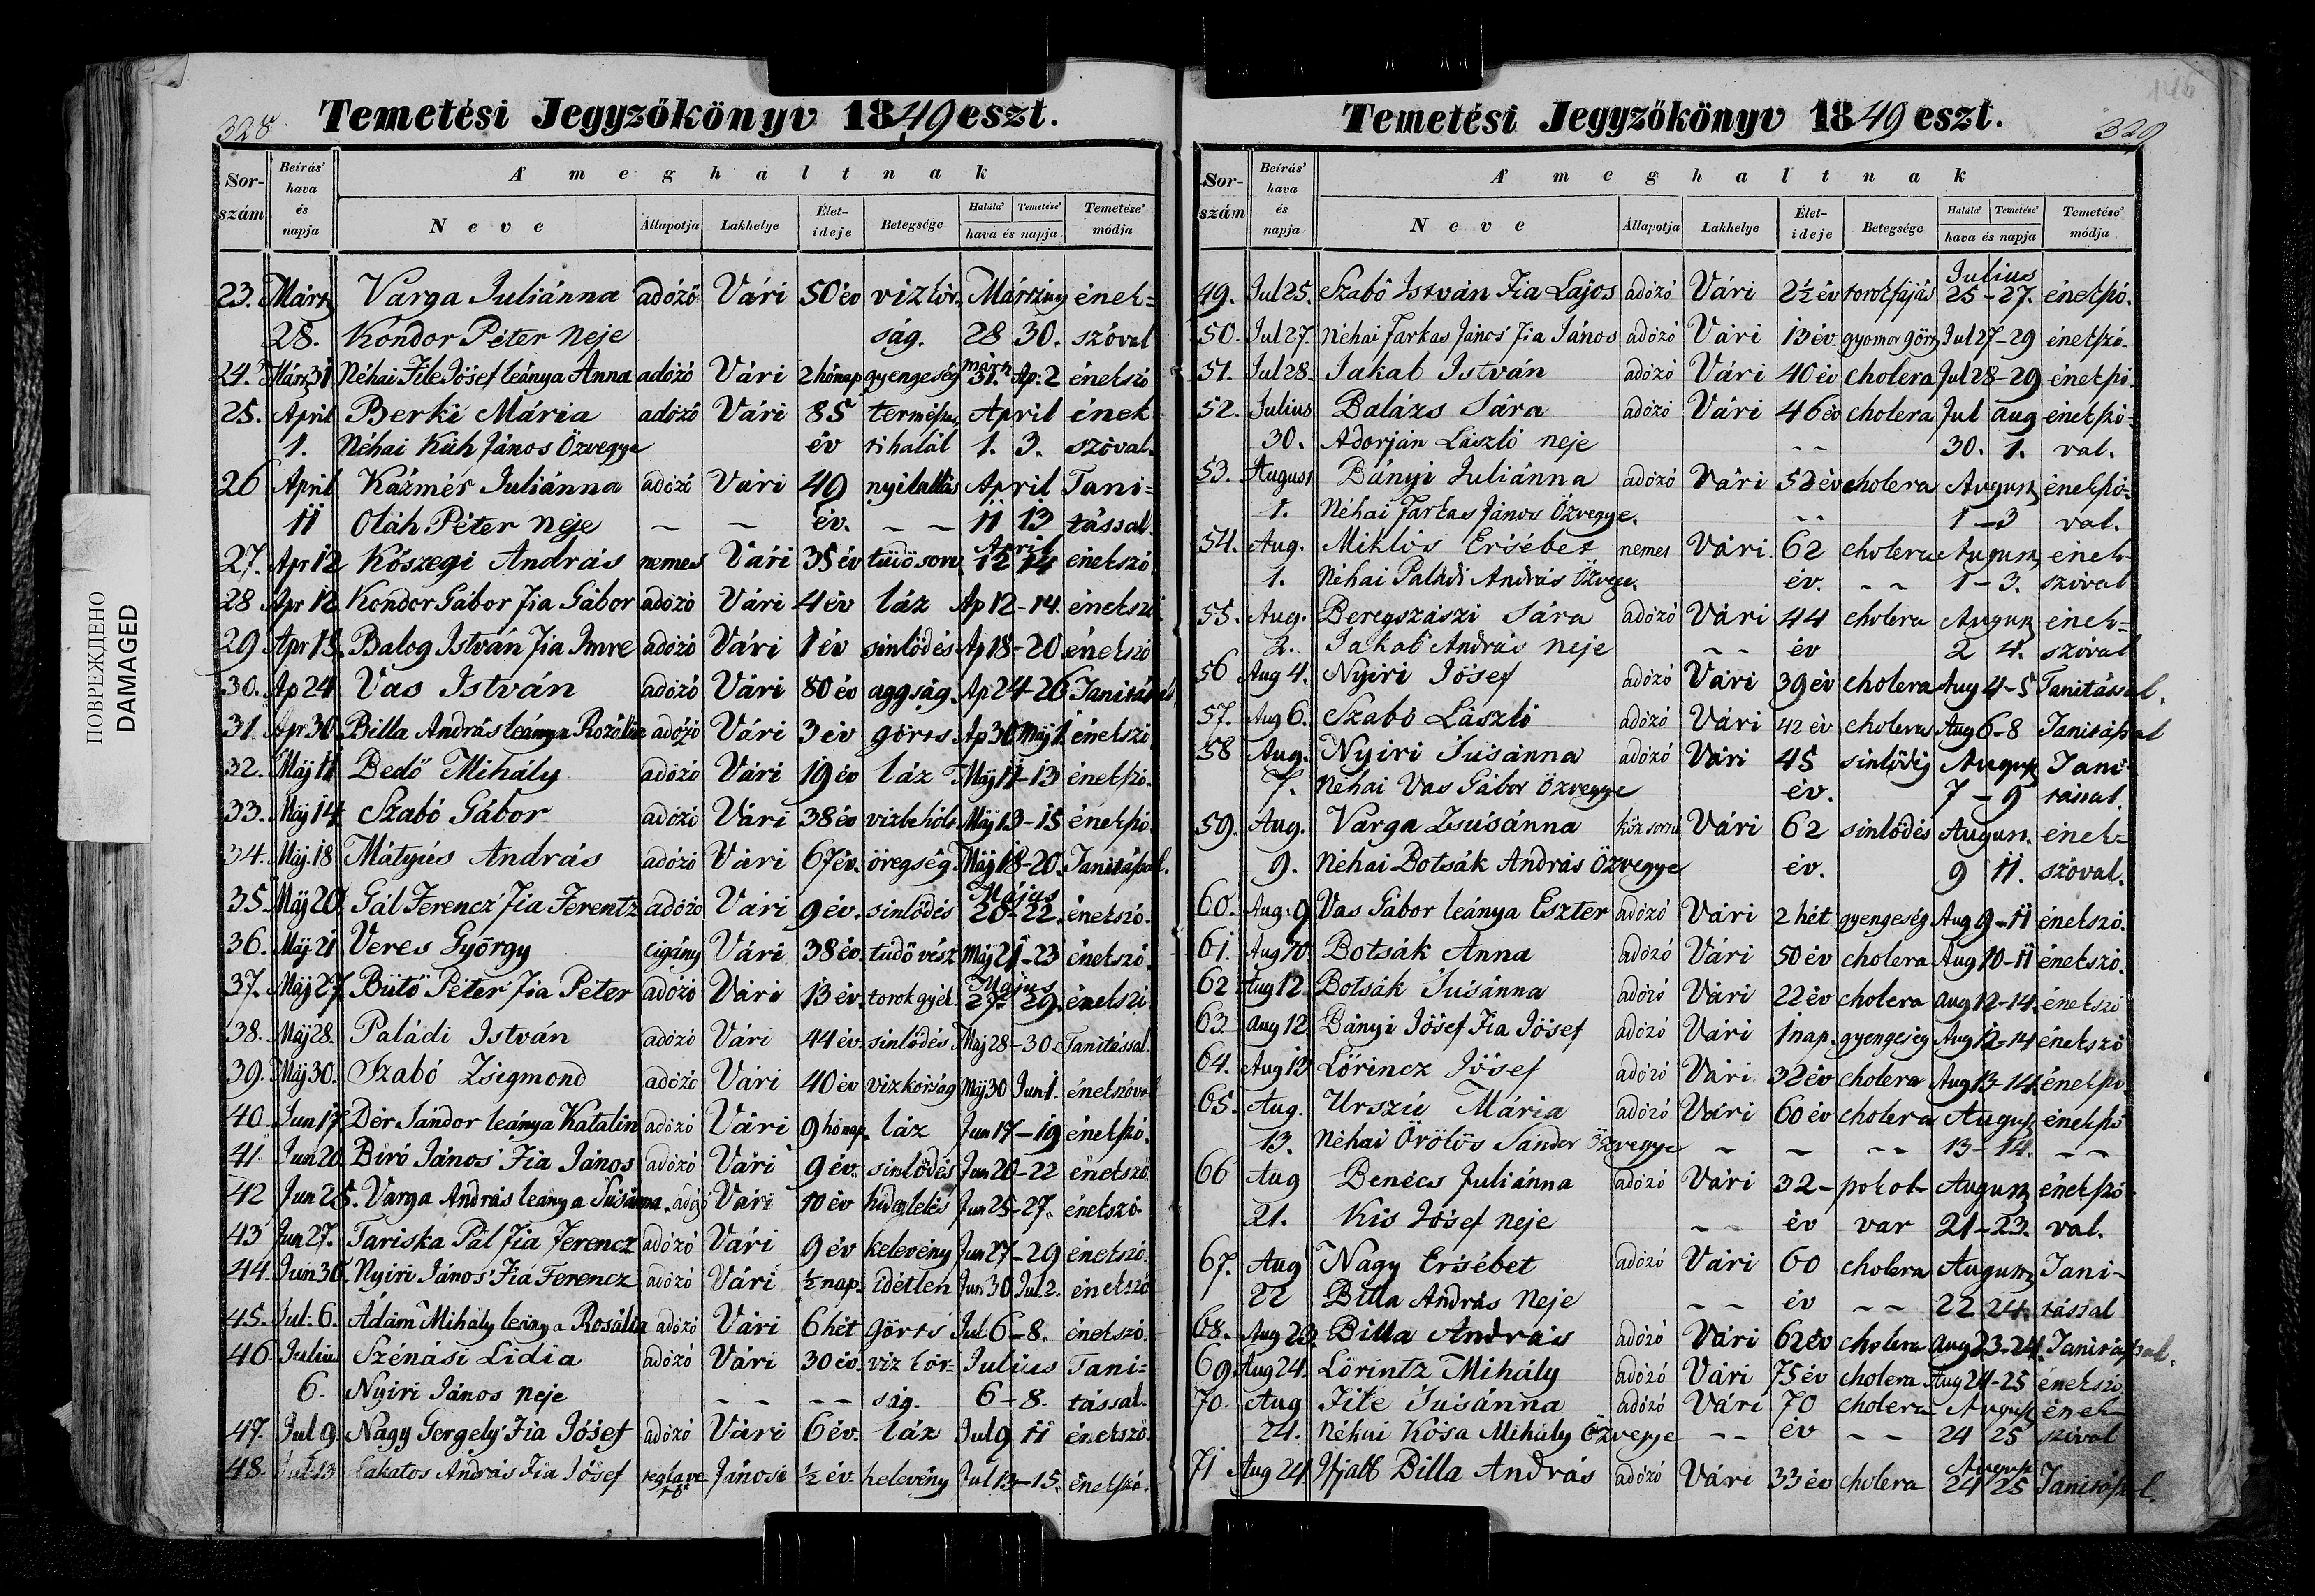 328
Temetési Jegyzőkönyv 1849 eszt.
Sor-szám
Beírás' hava és napja
A' meghaltnak
Neve
Állapotja
Lakhelye
Élet-ideje
Betegsége
Halála' Temetése'
hava és napja
Temetése' módja
23. Márcz Varga Juliánna adózó Vári 50 év vízkór- Márczius ének-
28. Kondor Péter neje ság. 28 30. szóval
24. Márcz 31 Néhai File Jósef leánya Anna adózó Vári 2 hónap gyengeség márcz 31. Ap. 2 énekszó
25. April Berki Mária adózó Vári 85 April ének
1. Néhai János Özvegye év halál 1. 3. szóval.
26 April Kázmér Juliánna adózó Vári 49 nyilallás April Tani-
11 Oláh Péter neje – – év. – – 11 13 tással.
27. Apr 12 Kőszegi András nemes Vári 35 év April 12 14 énekszó
28 Apr 12 Kondor Gábor fia Gábor adózó Vári 4 év láz Ap 12-14. énekszó
29 Apr 18. Balog István fia Imre adózó Vári 1 év sinlődés Ap 18-20 énekszó
30. Ap 24 Vas István adózó Vári 80 év aggság. Ap 24-26 Tanitással
31. Apr 30 Billa András leánya Rozália adózó Vári 3 év görts Ap 30 Máj 1. énekszó
32. Máj 11 Bedő Mihály adózó Vári 19 év láz Máj 11-13 énekszó.
33. Máj 14 Szabó Gábor adózó Vári 38 év vizbe holt. Máj 13-15 énekszó.
34. Máj. 18 Mátyús András adózó Vári 67 év. öregség. Máj 18-20. Tanitással.
35. Máj 20. Gál Ferencz fia Ferentz adózó Vári 9 év. sinlődés Május 20-22. énekszó.
36. Máj. 21 Veres György czigány Vári 38 év. tüdő vész Máj 21-23 énekszó.
37. Máj 27 Bütö Péter fia Péter adózó Vári 13 év. torokgyík. Május 27. 29. énekszó
38. Máj 28. Paládi István adózó Vári 44 év. sinlődés Máj 28-30. Tanitással.
39. Máj 30. Szabó Zsigmond adózó Vári 40 év vizkórság Máj 30 Jun 1. énekszóval
40. Jun 17 Dér Sándor leánya Katalin adózó Vári 9 hónap. láz Jun 17-19 énekszó.
41. Jun 20. Biró János' fia János adózó Vári 9 év. sinlődés Jun 20-22 énekszó
42 Jun 25. Varga András leánya Susánna. adózó Vári 10 év hideglelés Jun 25-27. énekszó.
43 Jun 27. Tariska Pál fia Ferencz adózó Vári 9 év kelevény Jun 27-29 énekszó.
44. Jun 30. Nyiri János' fia Ferencz adózó Vári ½ nap. idétlen Jun. 30 Jul. 2. énekszó
45. Jul. 6. Ádám Mihály leánya Rosália adózó Vári 6 hét görts Jul. 6-8. énekszó.
46. Julius Szénási Lidia adózó Vári 30 év. viz kór- Julius Tani-
6. Nyiri János neje – – – – ság. 6-8. tással.
47. Jul 9. Nagy Gergely fia Jósef adózó Vári 6 év. láz Jul 9 11 énekszó.
48. Jul 13 Lakatos András fia Jósef Jánosi ½ év. kelevény Jul 13-15. énekszó.
329
Temetési Jegyzőkönyv 1849 eszt.
Sor-szám
Beírás' hava és napja
A' meghaltnak
Neve
Állapotja
Lakhelye
Élet-ideje
Betegsége
Halála' Temetése'
hava és napja
Temetése' módja
49. Jul 25. Szabó István fia Lajos adózó Vári 2½ év torokfájás Julius 25-27. énekszó.
50. Jul 27. Néhai Farkas János' fia János adózó Vári 13 év. gyomor görcs Jul 27-29 énekszó.
51. Jul 28. Jakab István adózó Vári 40 év cholera Jul 28-29 énekszó.
52. Julius Balázs Sára adózó Vári 46 év cholera Jul aug énekszó-
30. Adorján László neje – – 30. 1. val.
53. August Bányi Juliánna adózó Vári 52 év cholera August énekszó-
1. Néhai Farkas János Özvegye. – – 1-3 val.
54. Aug. Miklós Ersébet nemes Vári. 62 cholera August ének-
1. Néhai Paládi András Özvegye. év. – – 1-3. szóval
55. Aug. Beregszászi Sára adózó Vári 44 cholera August ének-
2. Jakab András neje – – év 2 4. szóval
56 Aug 4. Nyiri Jósef adózó Vári 39 év cholera Aug 4-5 Tanitással.
57. Aug 6. Szabó László adózó Vári 42 év cholera Aug 6-8 Tanitással
58 Aug. Nyiri Susánna adózó Vári 45 sinlődés August Tani-
7. Néhai Vas Gábor Özvegye év. 7-9 tással.
59. Aug. Varga Zsusánna Vári 62 sinlődés August. ének-
9. Néhai Botsák András Özvegye év. 9 11. szóval.
60. Aug. 9 Vas Gábor leánya Eszter adózó Vári 2 hét gyengeség Aug 9-11 énekszó.
61. Aug 10 Botsák Anna adózó Vári 50 év cholera Aug 10-11 énekszó.
62 Aug 12. Botsák Susánna adózó Vári 22 év cholera Aug 12-14. énekszó
63. Aug 12 Bányi Jósef fia Jósef adózó Vári 1 nap. gyengeség Aug 12-14 énekszó
64. Aug 13 Lőrincz Jósef adózó Vári 32 év cholera Aug 13-14. énekszó
65. Aug. Urszú Mária adózó Vári 60 év cholera August énekszó
13. Néhai Örölös Sándor Özvegye – – – – 13-14. – –
66 Aug Benécs Juliánna adózó Vári 32- pokol- August énekszó
21. Kis Jósef neje – – év var 21-23. val.
67. Aug Nagy Ersébet adózó Vári 60 cholera August Tani-
22 Billa András Neje – – év – – 22 24. tással
68. Aug 23. Billa András adózó Vári 62 év cholera Aug 23-24. Tanitással.
69 Aug 24. Lőrintz Mihály adózó Vári 75 év cholera Aug 24-25 énekszó
70. Aug File Susánna adózó Vári 70 cholera August ének
24. Néhai Kósa Mihály Özvegye – – év – – 24 25 szóval
71 Aug 24 Ifjabb Billa András adózó Vári 33 év cholera August 24 25 Tanitással.
ПОВРЕЖДЕНО
DAMAGED